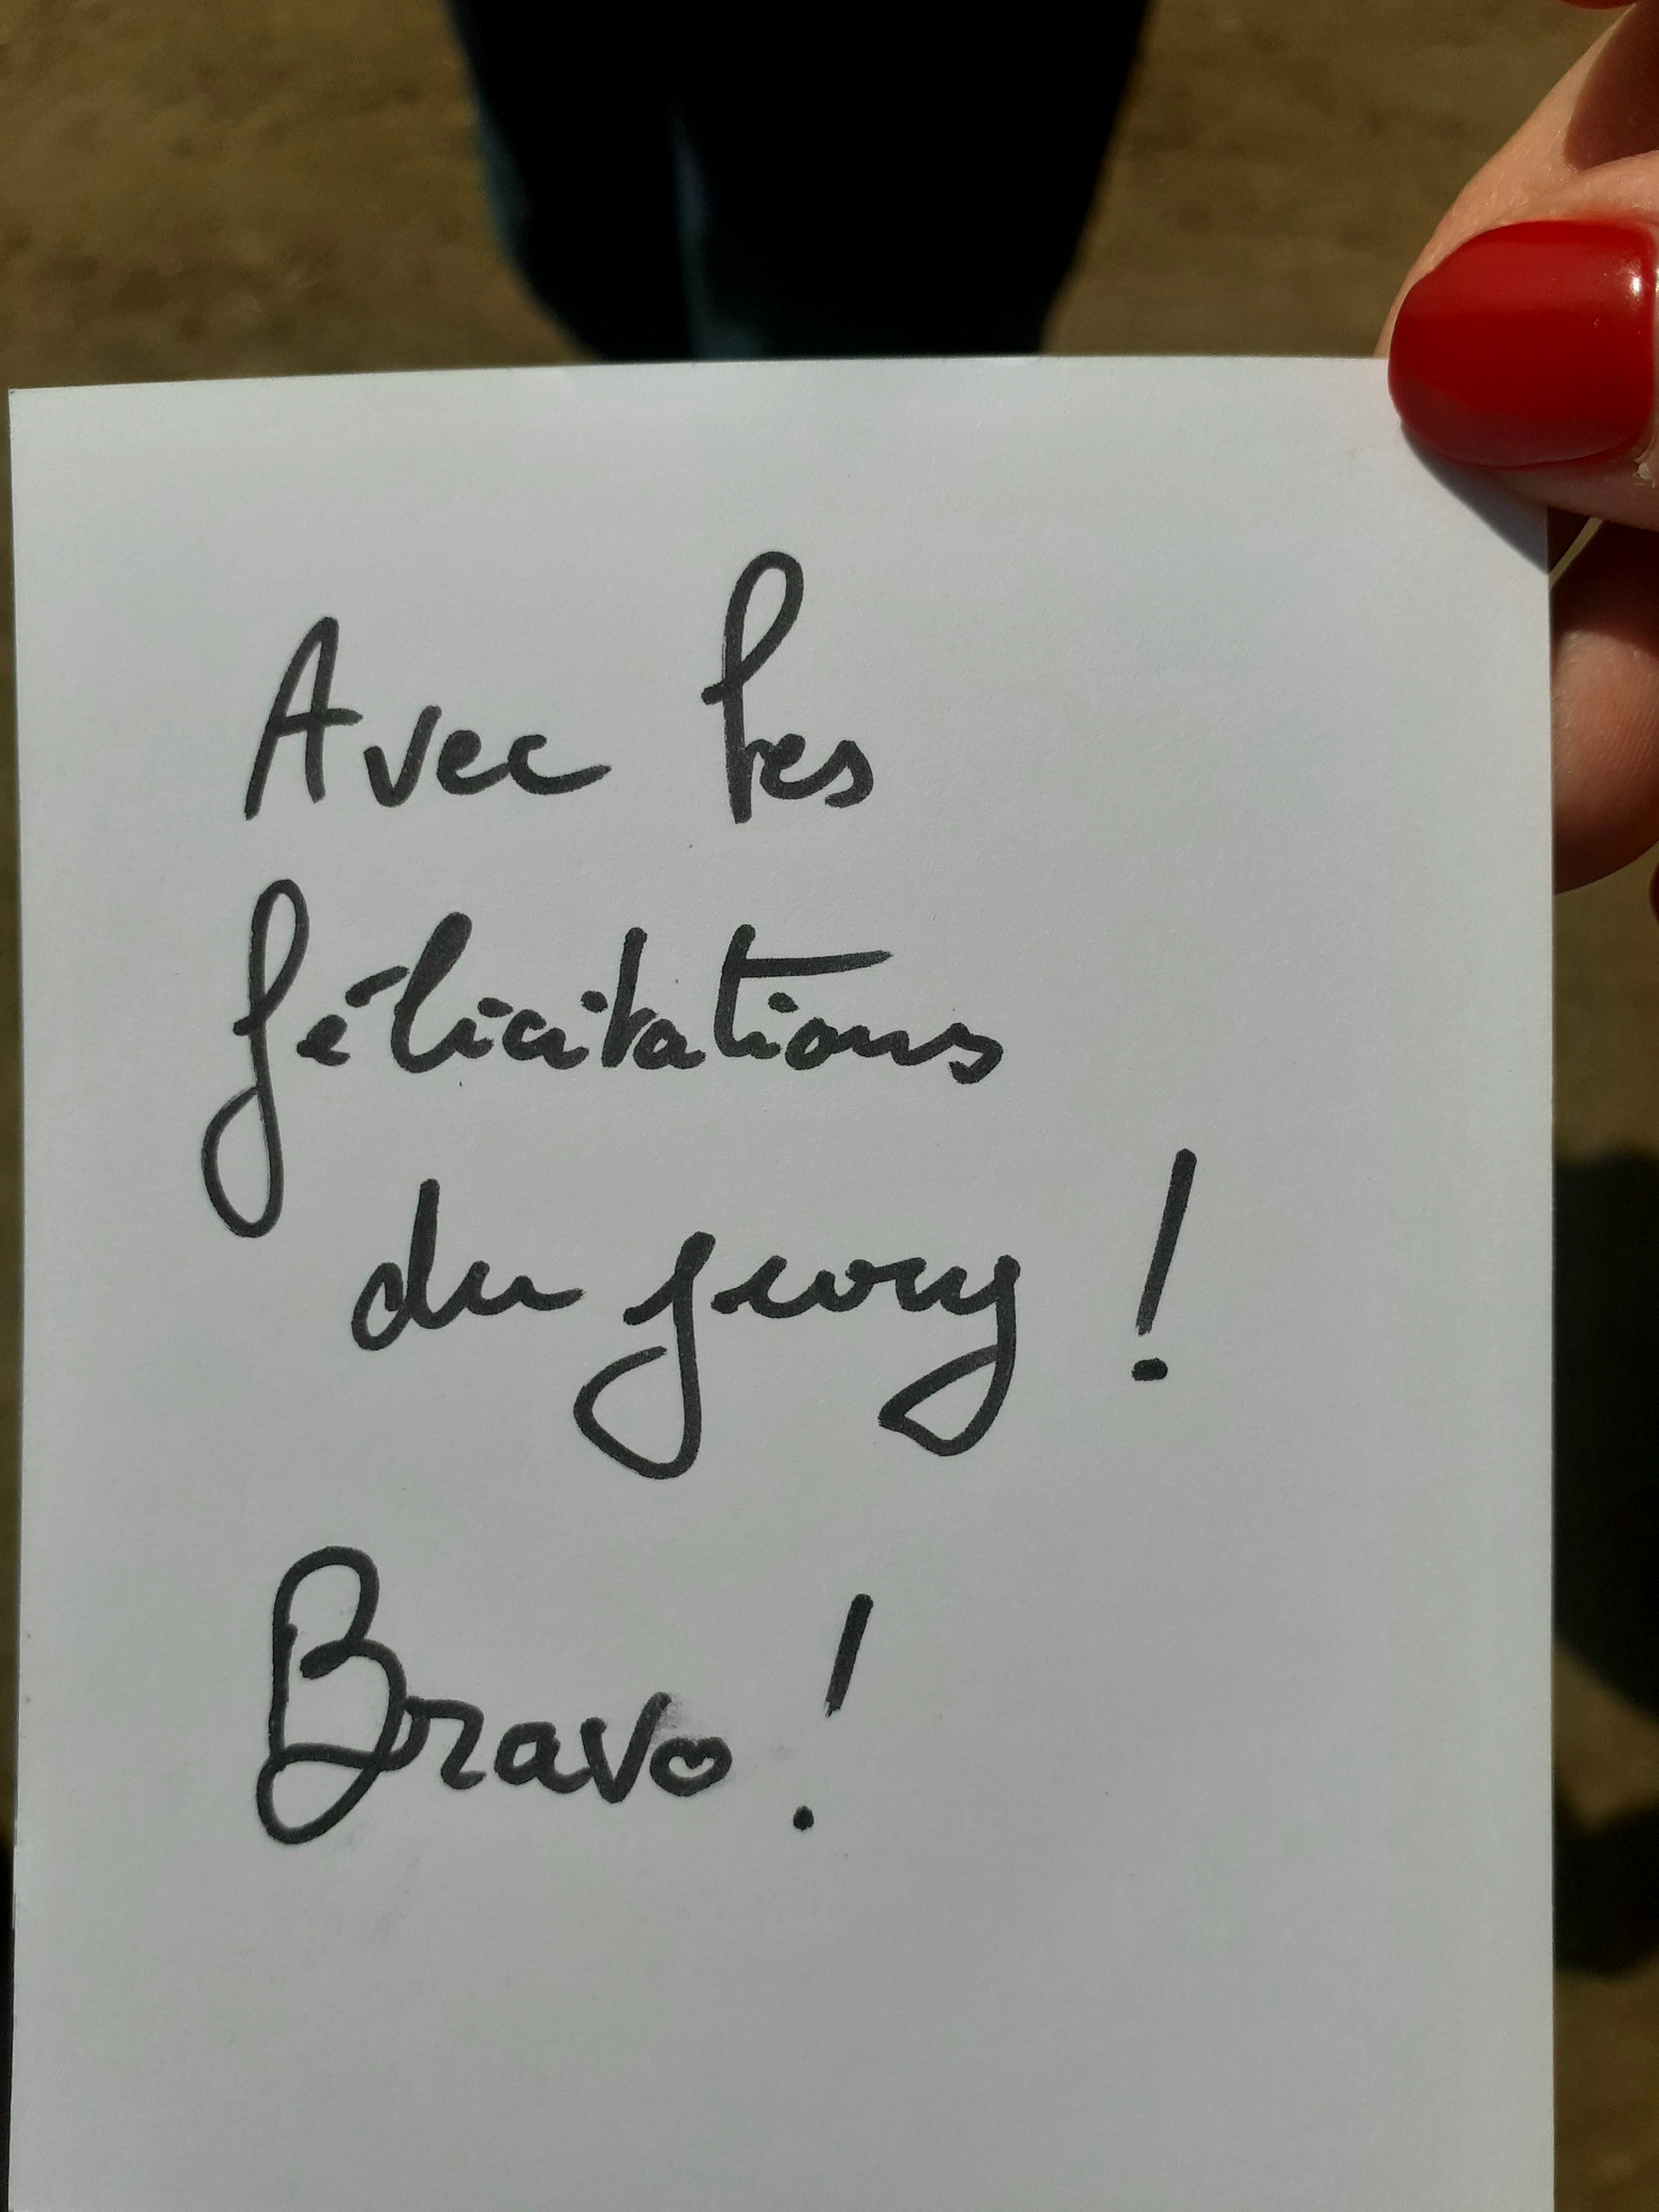 Avec les
félicitations
du jury !
Bravo !